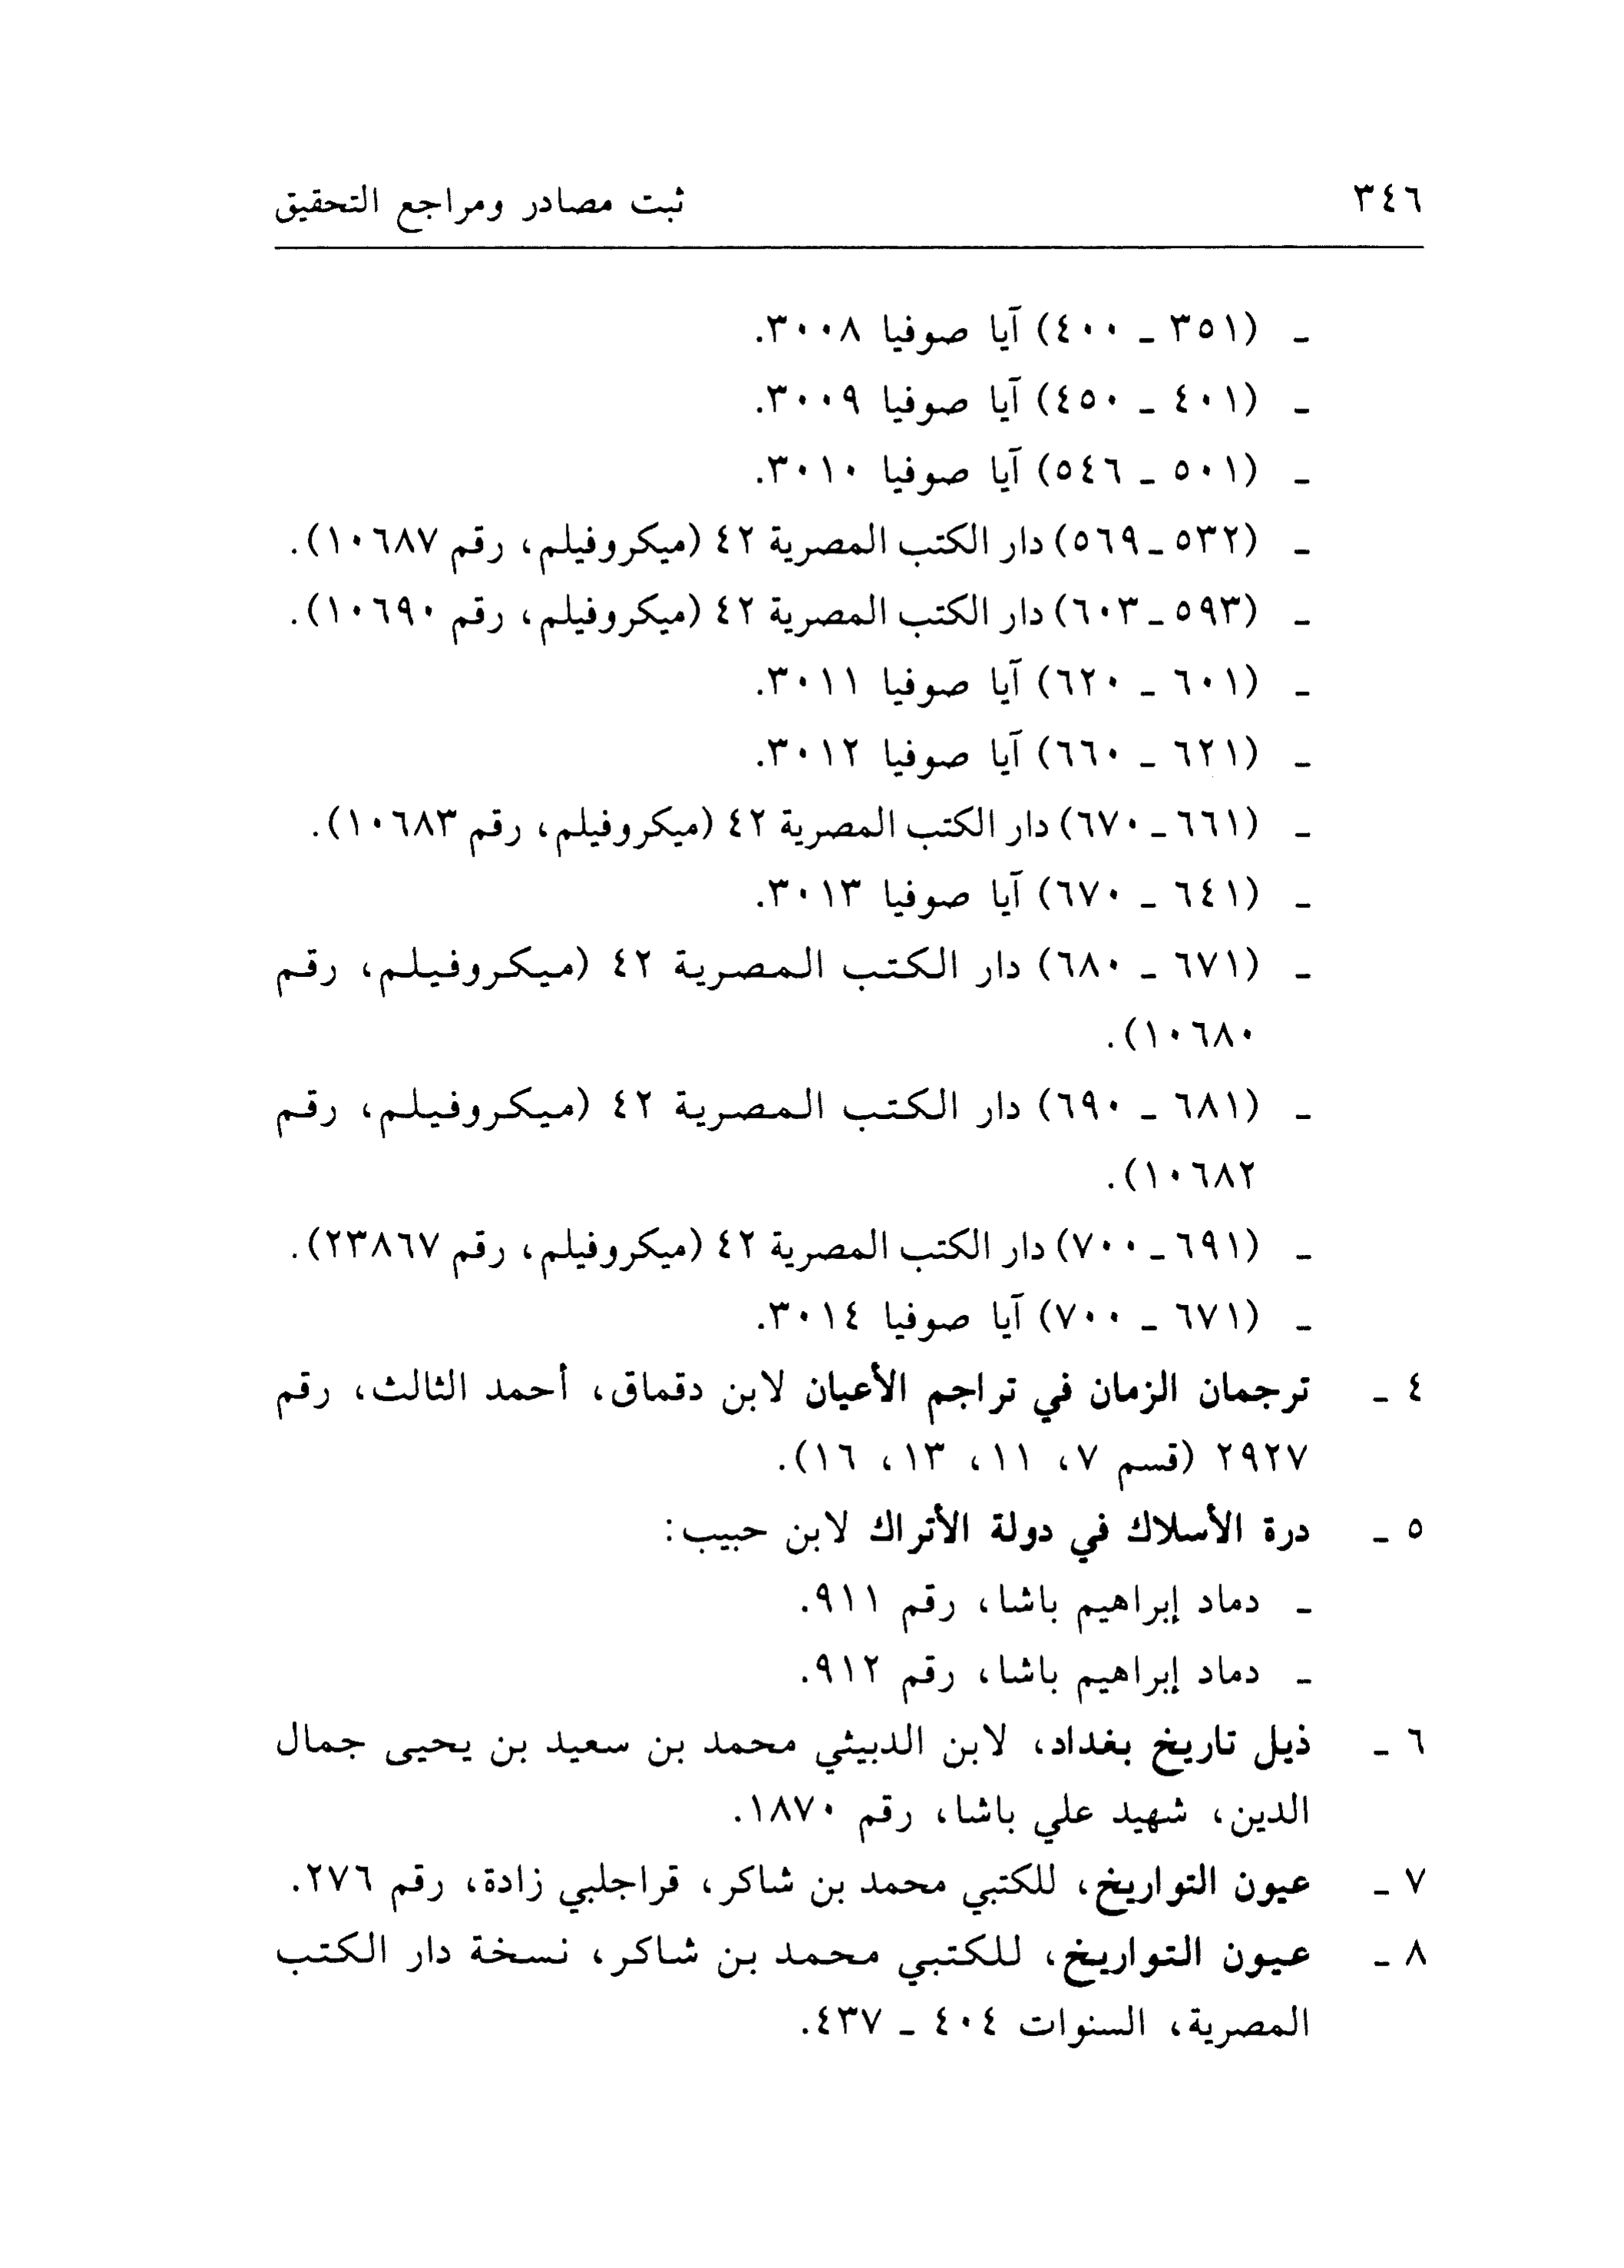 ٣٤٦ ثبت مصادر ومراجع التحقيق
ـ (٣٥١ ـ ٤٠٠) آيا صوفيا ٣٠٠٨.
ـ (٤٠١ ـ ٤٥٠) آيا صوفيا ٣٠٠٩.
ـ (٥٠١ ـ ٥٤٦) آيا صوفيا ٣٠١٠.
ـ (٥٣٢ـ٥٦٩) دار الكتب المصرية ٤٢ (ميكروفيلم، رقم ١٠٦٨٧).
ـ (٥٩٣ـ٦٠٣) دار الكتب المصرية ٤٢ (ميكروفيلم، رقم ١٠٦٩٠).
ـ (٦٠١ ـ ٦٢٠) آيا صوفيا ٣٠١١.
ـ (٦٢١ ـ ٦٦٠) آيا صوفيا ٣٠١٢.
ـ (٦٦١ـ٦٧٠) دار الكتب المصرية ٤٢ (ميكروفيلم، رقم ١٠٦٨٣).
ـ (٦٤١ ـ ٦٧٠) آيا صوفيا ٣٠١٣.
ـ (٦٧١ ـ ٦٨٠) دار الكتب المصرية ٤٢ (ميكروفيلم، رقم
١٠٦٨٠).
ـ (٦٨١ ـ ٦٩٠) دار الكتب المصرية ٤٢ (ميكروفيلم، رقم
١٠٦٨٢).
ـ (٦٩١ـ٧٠٠) دار الكتب المصرية ٤٢ (ميكروفيلم، رقم ٢٣٨٦٧).
ـ (٦٧١ ـ ٧٠٠) آيا صوفيا ٣٠١٤.
٤ ـ ترجمان الزمان في تراجم الأعيان لابن دقماق، أحمد الثالث، رقم
٢٩٢٧ (قسم ٧، ١١، ١٣، ١٦).
٥ ـ درة الأسلاك في دولة الأتراك لابن حبيب:
ـ دماد إبراهيم باشا، رقم ٩١١.
ـ دماد إبراهيم باشا، رقم ٩١٢.
٦ ـ ذيل تاريخ بغداد، لابن الدبيثي محمد بن سعيد بن يحيى جمال
الدين، شهيد علي باشا، رقم ١٨٧٠.
٧ ـ عيون التواريخ، للكتبي محمد بن شاكر، قراجلبي زادة، رقم ٢٧٦.
٨ ـ عيون التواريخ، للكتبي محمد بن شاكر، نسخة دار الكتب
المصرية، السنوات ٤٠٤ ـ ٤٣٧.